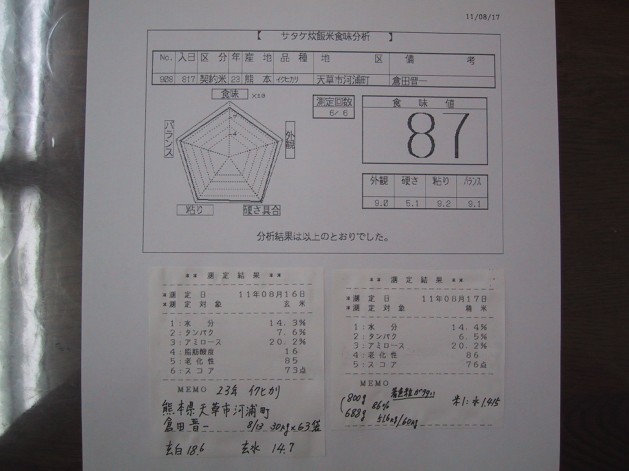 11/08/17
【 サタケ炊飯米食味分析 】
No. 入日 区分 年 産地 品種 地区 備考
908 817 契約米 23 熊本 イクヒカリ 天草市河浦町 倉田晋一
食味 ×10
外観
硬さ具合
粘り
バランス
測定回数
6/ 6
食味値
87
外観 硬さ 粘り バランス
9.0 5.1 9.2 9.1
分析結果は以上のとおりでした。
** 測定結果 **
*測定日 11年08月16日
*測定対象 玄米
1:水分 14.3%
2:タンパク 7.6%
3:アミロース 20.2%
4:脂肪酸度 16
5:老化性 85
6:スコア 73点
MEMO 23年 イクヒカリ
熊本県天草市河浦町
倉田晋一 8/13 30kg×63袋
玄白18.6 玄水 14.7
** 測定結果 **
*測定日 11年08月17日
*測定対象 精米
1:水分 14.4%
2:タンパク 6.5%
3:アミロース 20.2%
4:老化性 86
5:スコア 76点
MEMO
800g
688g 86% 米1:水1.415
51.6kg/60kg